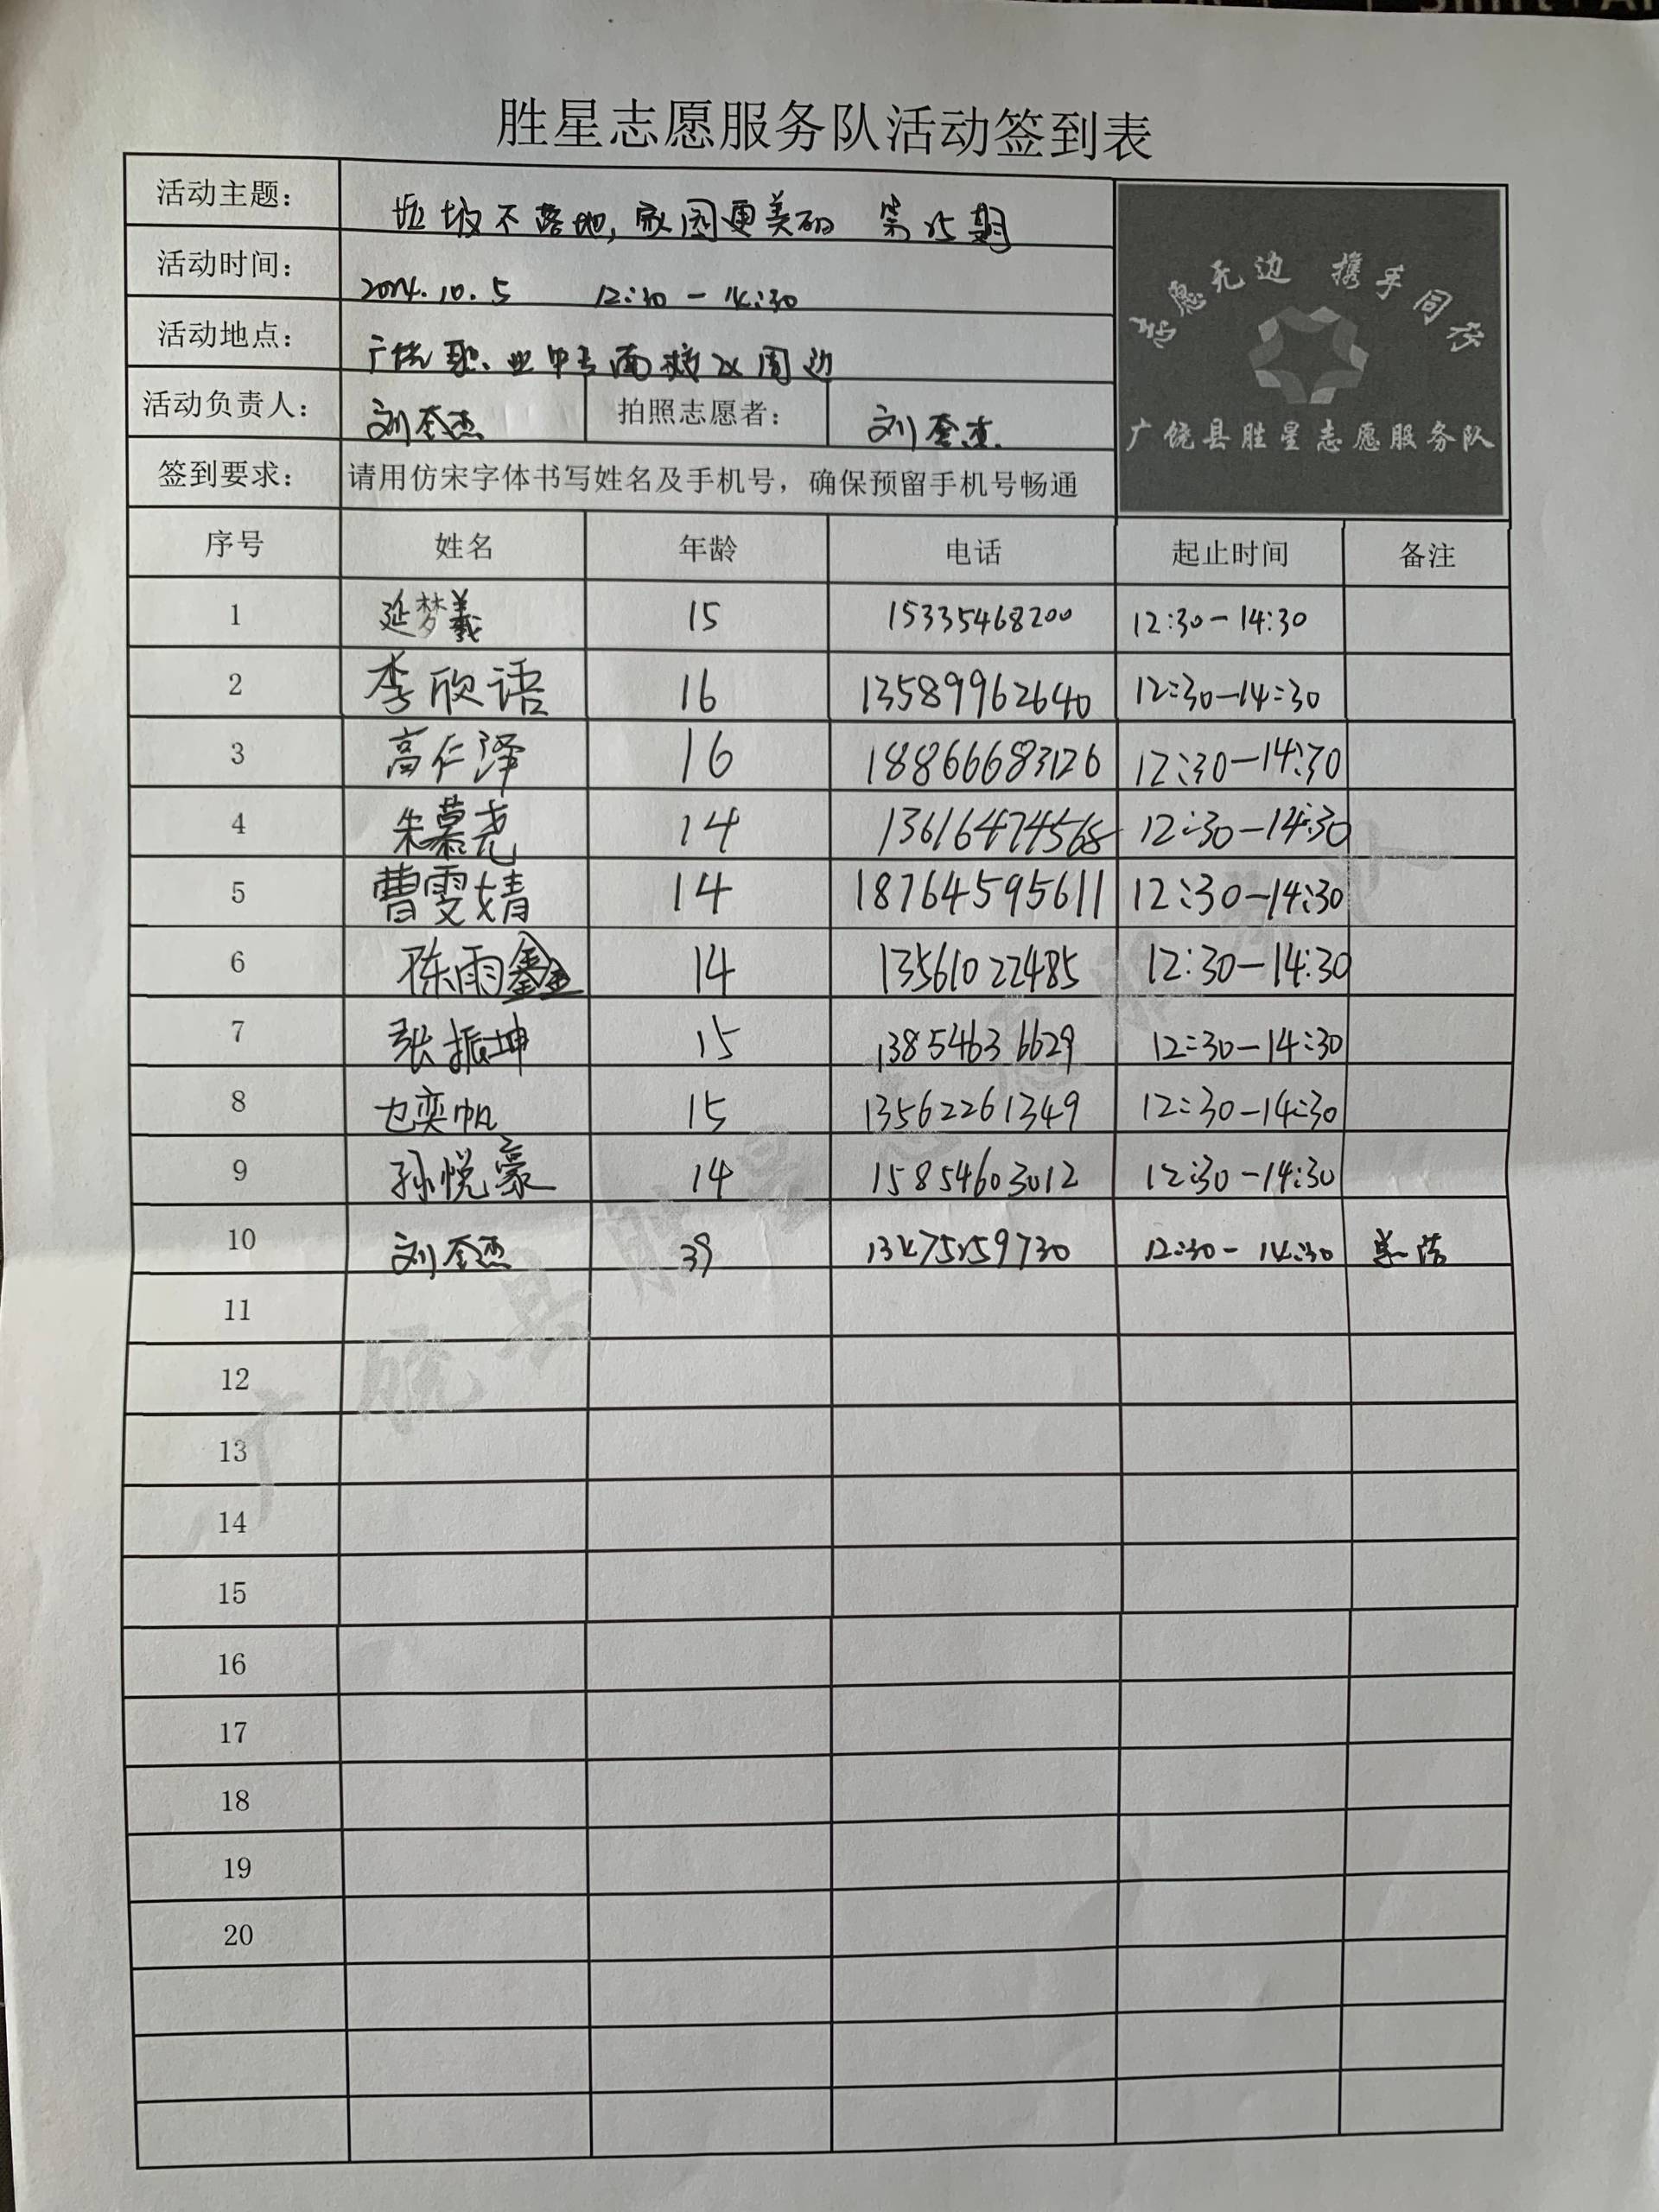 胜星志愿服务队活动签到表
活动主题： 垃圾不落地,家园更美丽 第25期
活动时间： 2024.10.5 12:30-14:30
活动地点： 广饶职业中专南校及周边
活动负责人： 刘奎杰 拍照志愿者： 刘奎杰
签到要求： 请用仿宋字体书写姓名及手机号，确保预留手机号畅通
志愿无边 携手同行
广饶县胜星志愿服务队
序号 姓名 年龄 电话 起止时间 备注
1 延梦羲 15 15335468200 12:30-14:30
2 李欣语 16 13589962640 12:30-14:30
3 高仁泽 16 18866683126 12:30-14:30
4 朱慕尧 14 13616474568 12:30-14:30
5 曹雯婧 14 18764595611 12:30-14:30
6 陈雨鑫 14 13561022485 12:30-14:30
7 张振坤 15 13854636629 12:30-14:30
8 奕帆 15 13562261349 12:30-14:30
9 孙悦豪 14 15854603012 12:30-14:30
10 刘奎杰 39 12:30-14:30
11
12
13
14
15
16
17
18
19
20
广饶县胜星志愿服务队